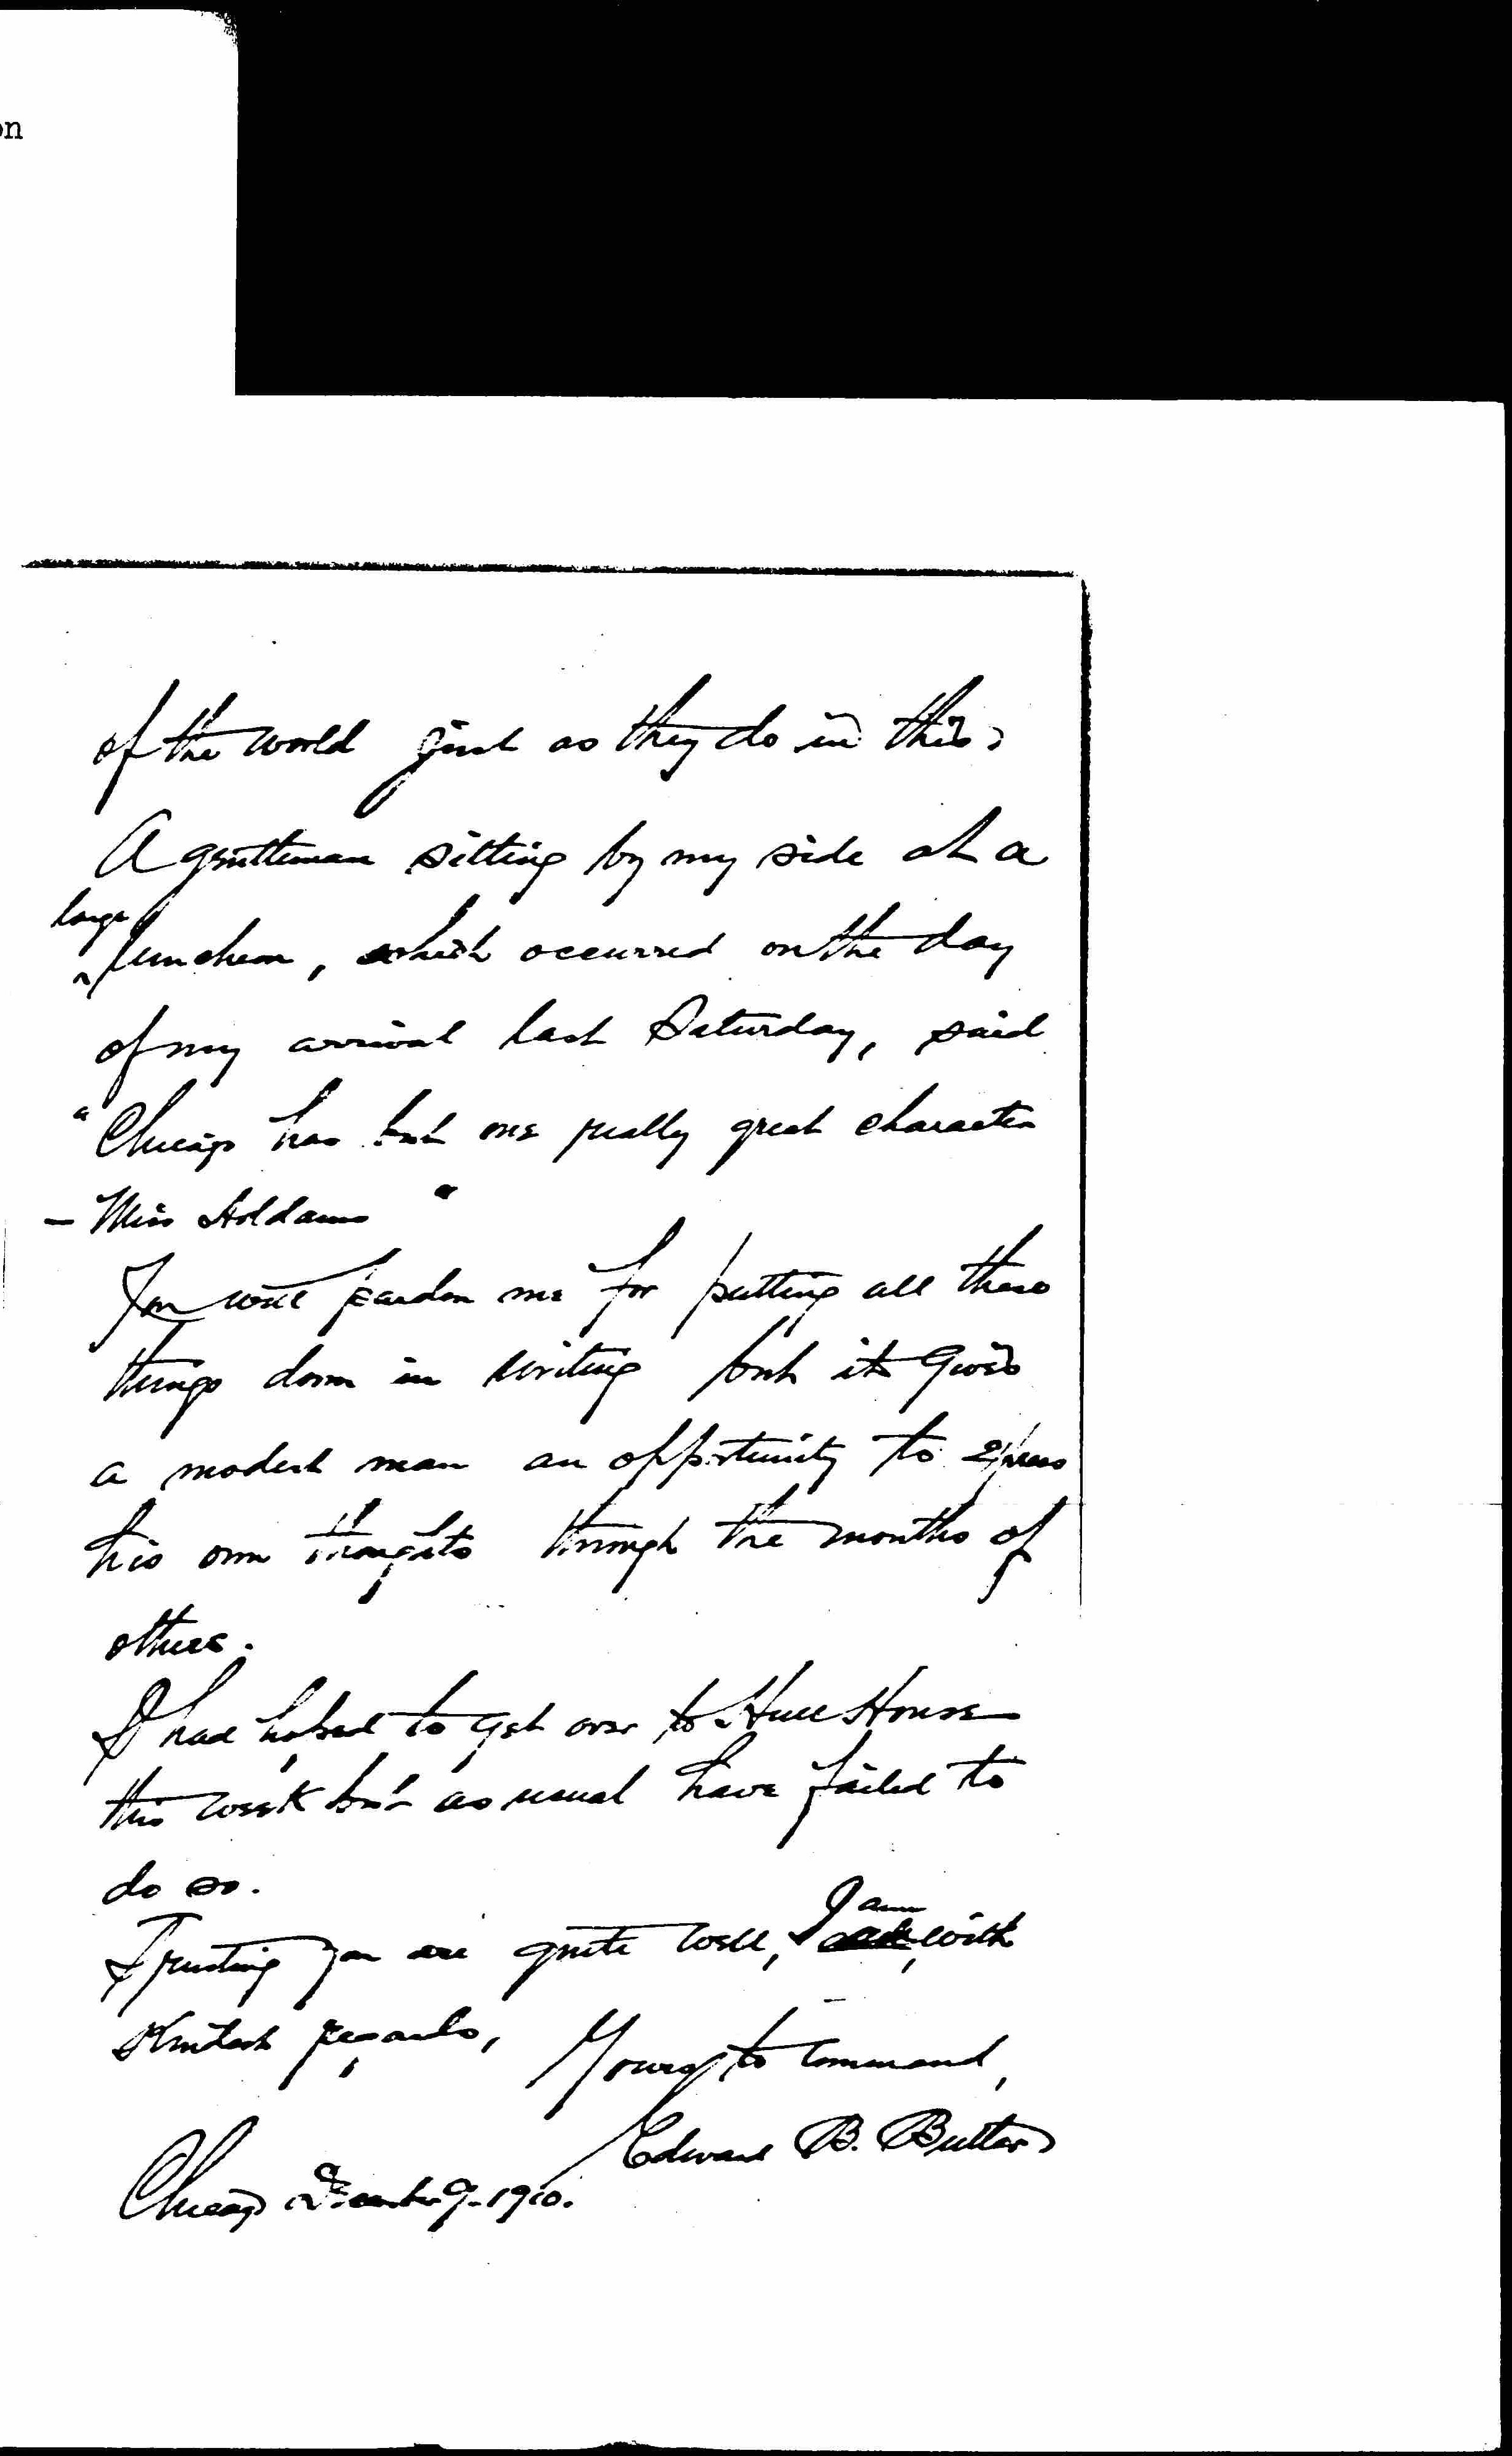 on
of the world just as they do in this.
A gentleman sitting by my side at a
large
luncheon, which occurred on the day
of my arrival last Saturday, said
"Chicago has but one really great character
- Miss Addams"
You will pardon me for putting all these
things down in writing but it gives
a modest man an opportunity to express
his own thoughts through the mouths of
others.
I had hoped to get over to Hull House
this week but as usual have failed to
do so.
I am
Trusting you are quite well, with
kindest regards,
Yours to command,
Edward B. Butler
Chicago December 9-1910.